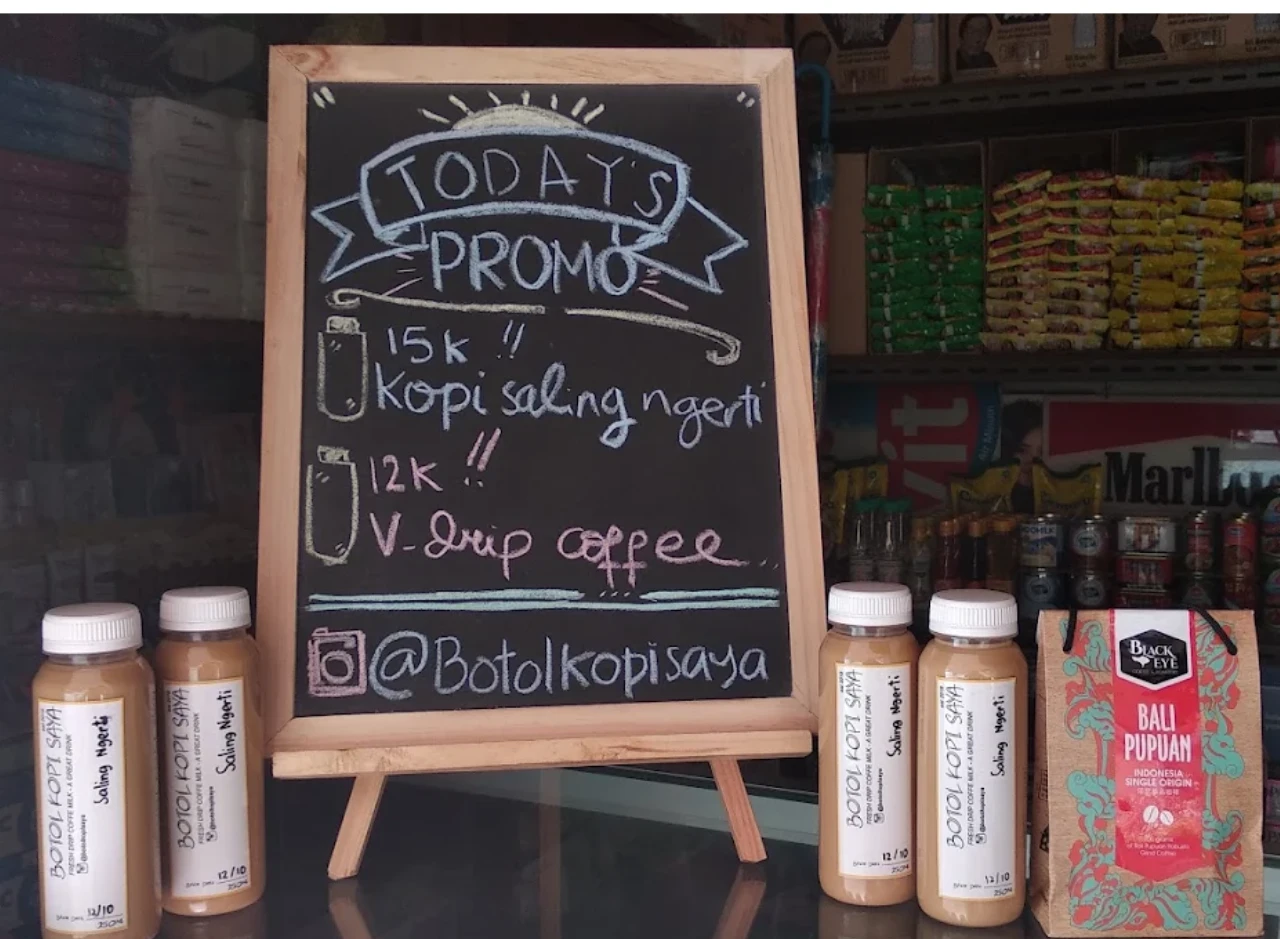 TODAY'S
PROMO
15k !!
Kopi saling ngerti
12k !!
V-drip coffee...
@Botolkopisaya
BOTOL KOPI SAYA
FRESH DRIP COFFE MILK - A GREAT DRINK
@botolkopisaya
Saling Ngerti
12/10
250ml
BOTOL KOPI SAYA
FRESH DRIP COFFE MILK - A GREAT DRINK
@botolkopisaya
Saling Ngerti
12/10
250ml
BOTOL KOPI SAYA
FRESH DRIP COFFE MILK - A GREAT DRINK
@botolkopisaya
Saling Ngerti
12/10
250ml
BOTOL KOPI SAYA
FRESH DRIP COFFE MILK - A GREAT DRINK
@botolkopisaya
Saling Ngerti
12/10
250ml
BLACK
EYE
BALI
PUPUAN
INDONESIA
SINGLE ORIGIN
of Bali Pupuan Robusta
Vit
Air Minum
Marlbo